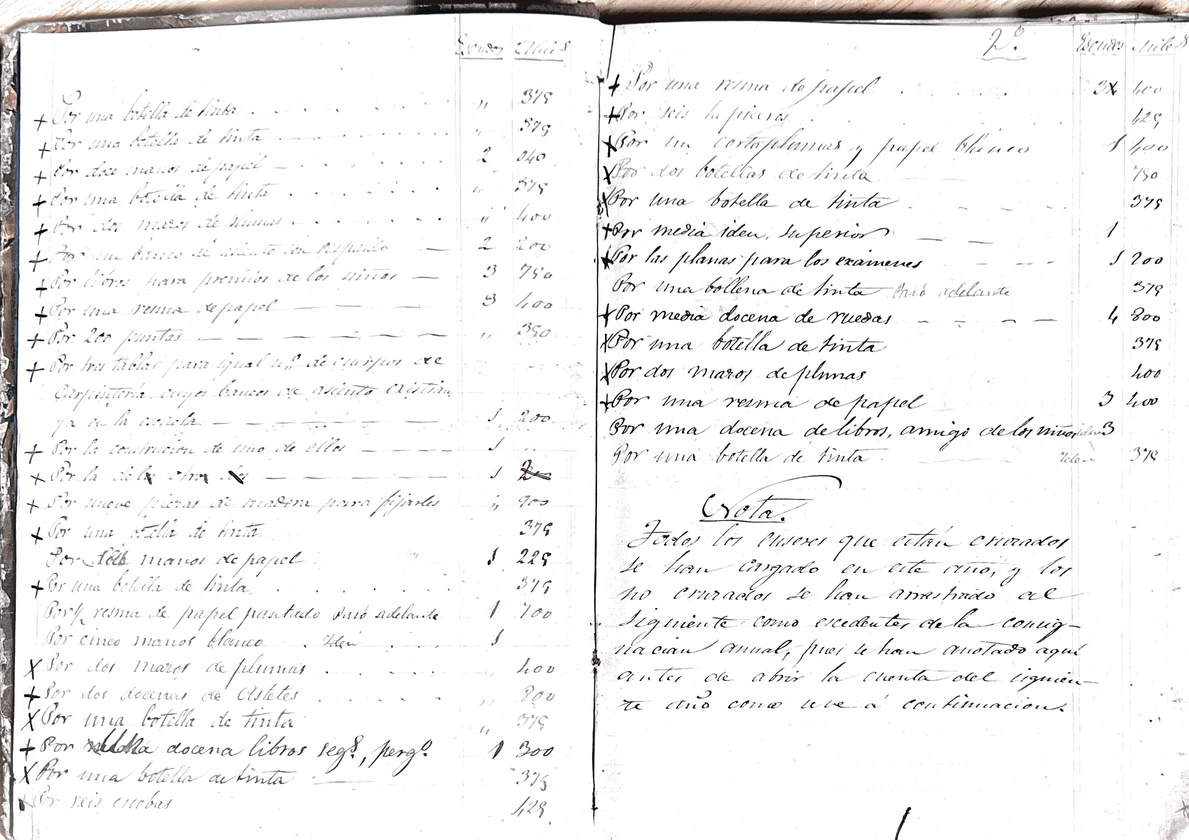 Escudos Miles
+ Por una botella de tinta . . . „ 375
+ Por una botella de tinta . . . „ 375
+ Por doce manos de papel — 2 040
+ Por una botella de tinta . . . „ 375
+ Por dos mazos de plumas . . . „ 400
+ Por un banco de asiento con respaldo — 2 200
+ Por libros para premios de los niños — 3 750
+ Por una resma de papel — 3 400
+ Por 200 puntas — „ 350
+ Por tres tablas para igual nº. de cuerpos de
Carpintería cuyos bancos de asiento existian
ya en la escuela — 1 200
+ Por la construcion de uno de ellos — 1
+ Por la de 1
+ Por nueve piezas de madera para fijarles „ 900
+ Por una botella de tinta 375
Por manos de papel 1 225
+ Por una botella de tinta . . . 375
Por ½ resma de papel pautado Pasó adelante 1 700
Por cinco manos blanco . . Idem 1
X Por dos mazos de plumas . . . 400
+ Por dos docenas de . . . „ 800
X Por una botella de tinta „ 375
+ Por docena libros segº., pergº. 1 300
X Por una botella de tinta — 375
X Por seis escobas 425
2º. Escudos Miles
+ Por una resma de papel . . . 3 400
+ Por seis lapiceros . . . 425
X Por un cortaplumas y papel blanco 1 400
X Por dos botellas de tinta 750
X Por una botella de tinta . — — 375
+ Por media idem, superior — — 1
X Por las planas para los exámenes — — 1 200
Por una bollena de tinta Pasó adelante 375
+ Por media docena de ruedas - — - — 4 800
X Por una botella de tinta 375
X Por dos mazos de plumas 400
+ Por una resma de papel 3 400
Por una docena de libros, amigo de los niños idem 3
Por una botella de tinta Idem 375
Nota.
Todos los enseres que están cruzados
se han cargado en este año, y los
no cruzados se han arrastrado al
siguiente como escedentes de la consig-
nacion anual, pues se han anotado aquí
antes de abrir la cuenta del siguien-
te año como se ve á continuacion.